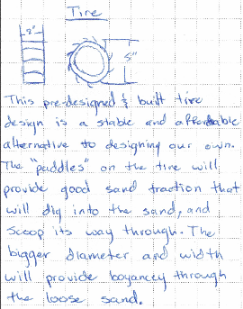 Tire
2"
5"
This pre-designed & built tire
design is a stable and affordable
alternative to designing our own.
The "paddles" on the tire will
provide good sand traction that
will dig into the sand, and
scoop its way through. The
bigger diameter and width
will provide boyancey through
the loose sand.